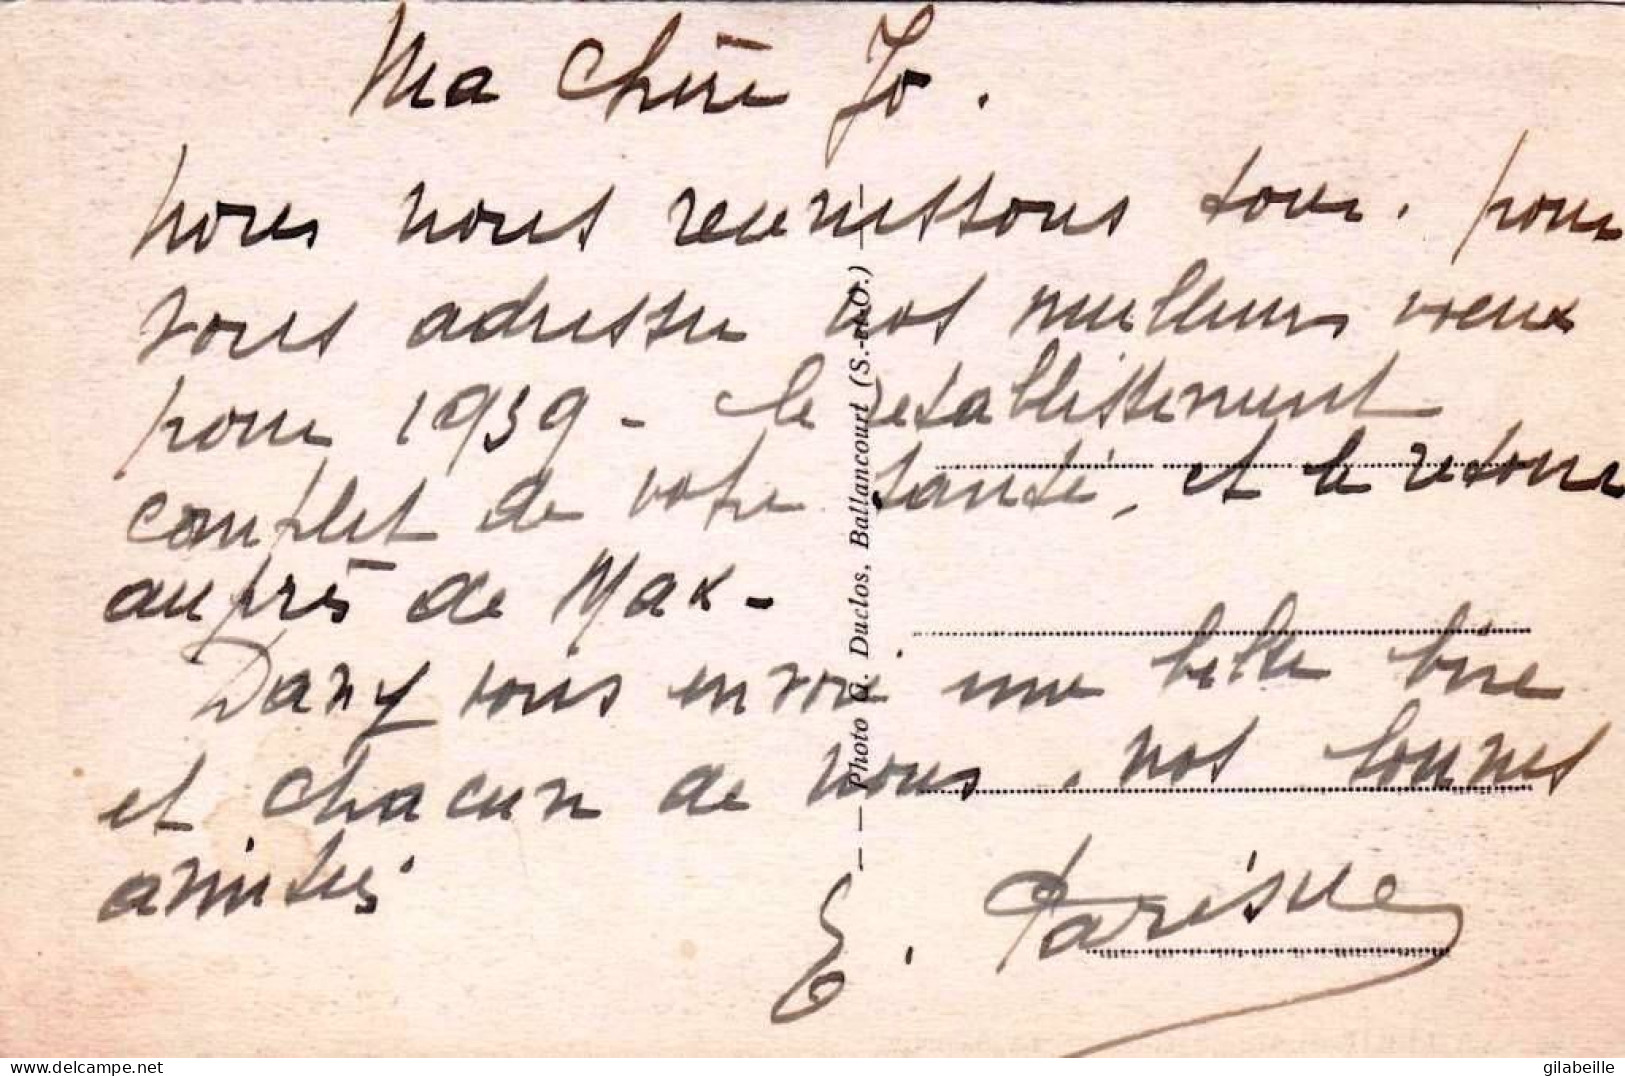 Ma Chère Jo.
nous nous reunissons tous. pour
vous adresser nos meilleurs voeux
pour 1939 - le retablissement
complet de votre santé, et le retour
auprès de Max -
Dany vous envoie une belle bise
et chacun de nous, nos bonnes
amitiés.
E.
Photo G. Duclos, Ballancourt (S.-et-O.)
delcampe.net
gilabeille